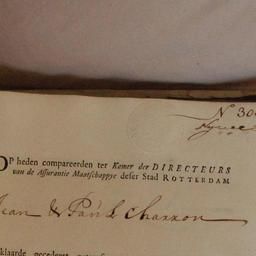 N 30
OP heden compareerden ter Kamer der DIRECTEURS
van de Assurantie Maatschappye deser Stad ROTTERDAM
Jean & Paul Charron
klaarde